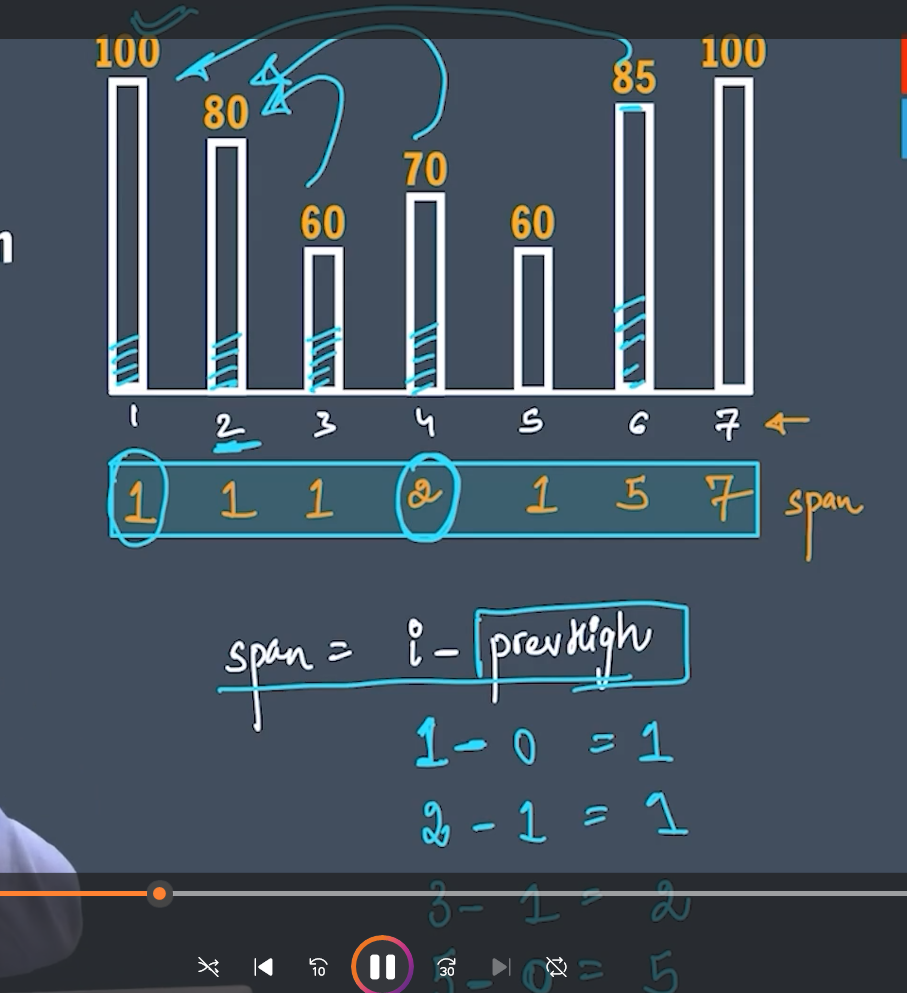 100 85 100
80
70
60 60
n
1 2 3 4 5 6 7
1 1 1 2 1 5 7 span
span = i - prevHigh
1 - 0 = 1
2 - 1 = 1
3 - 1 = 2
5 - 0 = 5
10 30